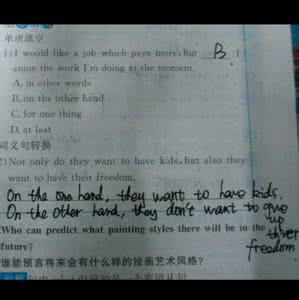 单项填空
(1)I would like a job which pays more, but B I
enjoy the work I'm doing at the moment.
A. in other words
B. on the other hand
C. for one thing
D. at last
词义句转换
(2)Not only do they want to have kids, but also they
want to have their freedom.
On the one hand, they want to have kids.
On the other hand, they don't want to give
up
their
freedom
Who can predict what painting styles there will be in the
future?
谁能预言将来会有什么样的绘画艺术风格?